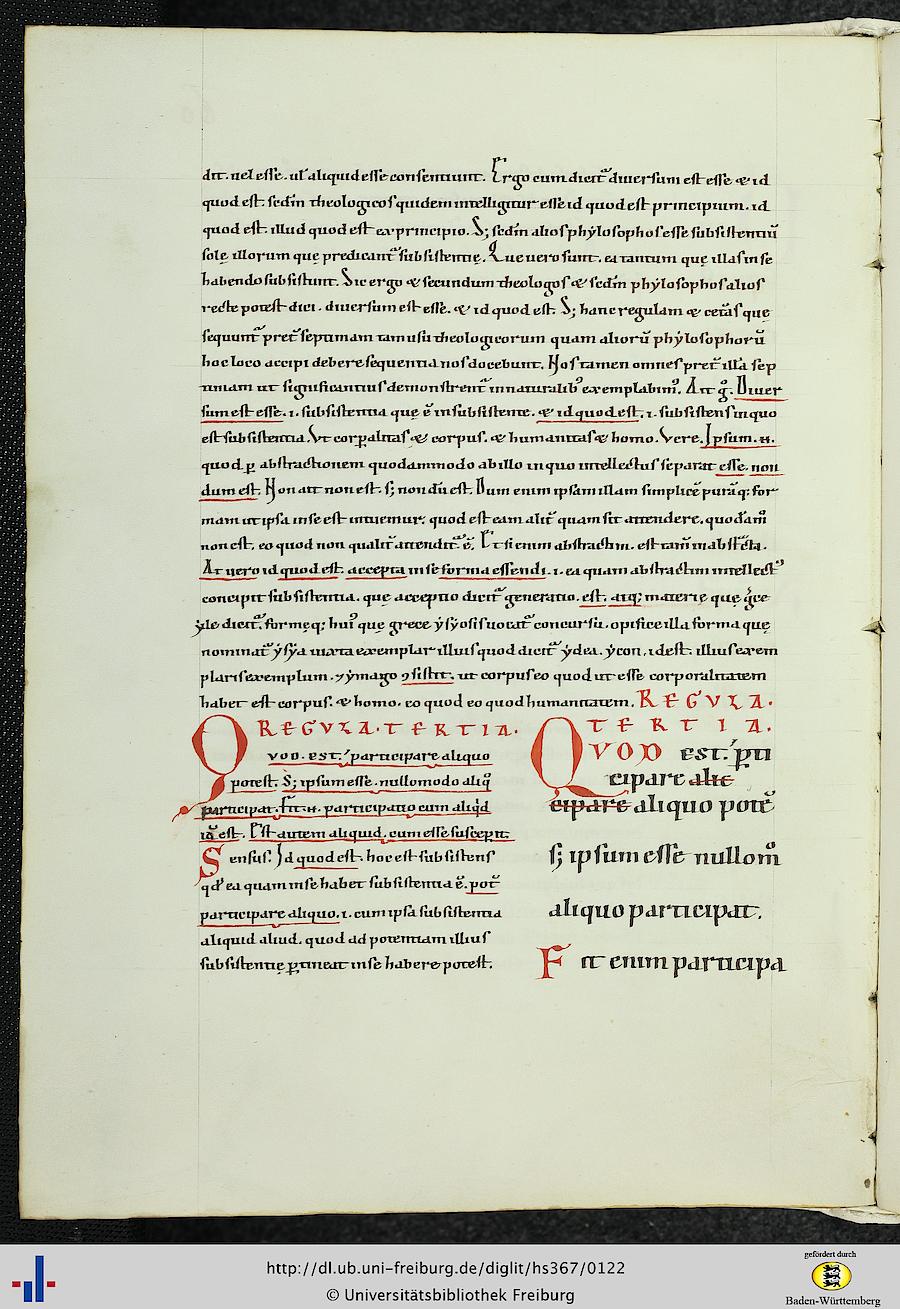 dit. uel esse. ul' aliquid esse consentiunt. Ergo cum dicit̃ diuersum est esse & id
quod est. scdm̃ theologicos quidem intelligitur esse id quod est principium. id
quod est. illud quod est ex principio. S; scdm̃ alios phylosophos esse subsistentiũ
solę illorum quę predicant̃ subsistentię. Que uero sunt. ea tantum quę illas in se
habendo subsistunt. Sic ergo & secundum theologos & scdm̃ phylosophos alios
recte potest dici. diuersum est esse. & id quod est. S; hanc regulam & cet̃as quę
sequunt̃ pret̃ septimam tam usu theologicorum quam aliorũ phylosophorũ
hoc loco accipi debere sequentia nos docebunt. Nos tamen omnes pret̃ illa sep
timam ut significantius demonstrent̃ in naturalib' exemplabim'. Ait g̊. Diuer
sum est esse. i. subsistentia quę ẽ in subsistente. & id quod est. i. subsistens in quo
est subsistentia. Vt corꝑalitas & corpus. & humanitas & homo. Vere. Ipsum .n.
quod ꝑ abstractionem quodammodo ab illo in quo intellectus separat esse. non
dum est. Non ait non est. s; non dũ est. Dum enim ipsam illam simplicẽ purãq; for
mam ut ipsa in se est intuemur. quod est eam alit̃ quam sit attendere. quodam̃
non est. eo quod non qualit̃ attendit̃ ẽ. Etsi enim abstractim. est tam̃ inabstracta.
At uero id quod est. accepta in se forma essendi. i. ea quam abstractim intellect'
concipit subsistentia. quę acceptio dicit̃ generatio. est. atq; materię quę g̃ce
yle dicit̃. formęq; hui' quę grece ysyosis uocat̃ concursu. opifice illa forma quę
nominat̃ ysya iuxta exemplar illius quod dicit̃ ydea. ycon. idest. illius exem
plaris exemplum. ⁊ ymago ꝯsistit. ut corpus eo quod ut esse corporalitatem
habet est corpus. & homo. eo quod eo quod humanitatem. REGVLA.
REGVLA·TERTIA. TERTIA.
QVOD. EST. participare aliquo
potest. S; ipsum esse. nullomodo aliq̊
participat. Fit .n. participatio cum aliq̇d
iã est. Est autem aliquid. cum esse susceperit.
Sensus. Id quod est. hoc est subsistens
qd' ea quam in se habet subsistentia ẽ. pot̃
participare aliquo. i. cum ipsa subsistentia
aliquid aliud. quod ad potentiam illius
subsistentię ꝑtineat in se habere potest.
QVOD est. ꝑti
cipare alic
cipare aliquo potẽ
s; ipsum esse nullom̊
aliquo participat.
Fit enim participa
http://dl.ub.uni-freiburg.de/diglit/hs367/0122
© Universitätsbibliothek Freiburg
gefördert durch
Baden-Württemberg